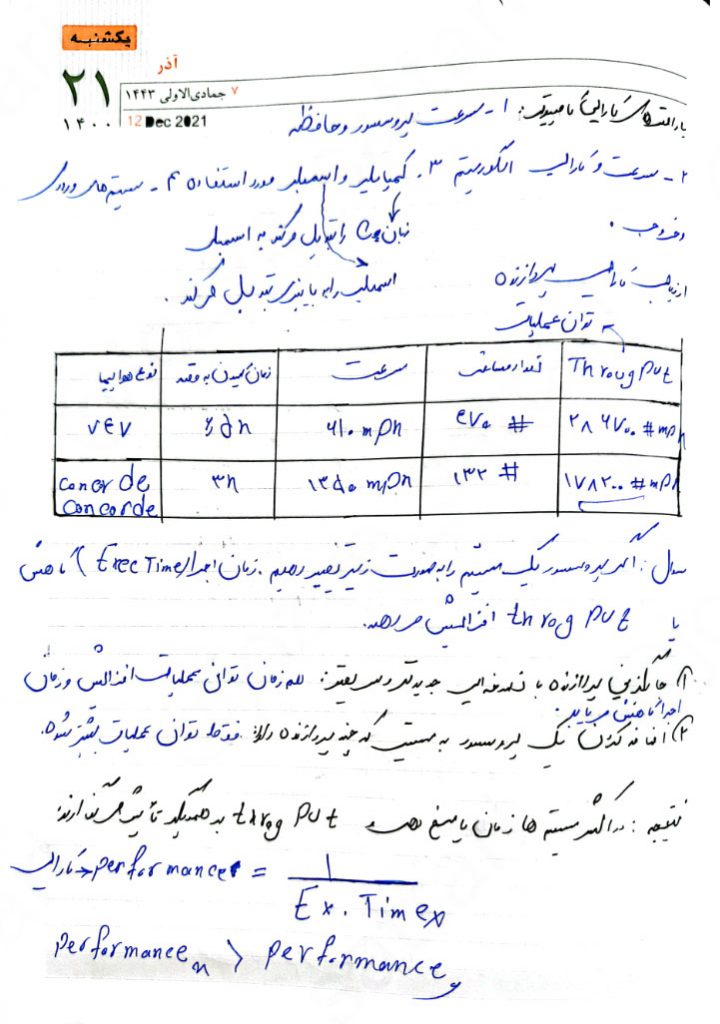 یکشنبه
آذر
۲۱
۷ جمادی‌الاولی ۱۴۴۳
۱۴۰۰
12 Dec 2021
پارامترهای کارایی کامپیوتر: ۱- سرعت پروسسور و حافظه
۲- سرعت و کارایی الگوریتم ۳. کمپایلر و اسمبلر مورد استفاده ۴- سیستم‌های ورودی
و خروجی .
زبان C++ را تبدیل میکند به اسمبلی
اسمبلی را به باینری تبدیل میکند .
ارزیابی کارایی پردازنده
توان عملیات
نوع هواپیما زمان رسیدن به مقصد سرعت تعداد مسافت Throug put
۷۴۷ ۶٫۵h ۶۱۰ mph ۴۷۰ # ۲۸۶۷۰۰ #mph
conorde
concorde ۳h ۱۳۵۰ mph ۱۳۲ # ۱۷۸۲۰۰ #mph
سوال : اگر پروسسور یک سیستم را به صورت زیر تغییر دهیم . زمان اجرا (Exec Time) کاهش
یا throg put افزایش میدهد.
۱) جایگزینی پردازنده با نسخه‌ای جدیدتر و سریعتر: همزمان توان عملیات افزایش و زمان
اجرا کاهش میابد.
۲) اضافه کردن یک پروسسور به سیستمی که چند پردازنده دارد: فقط توان عملیات بیشتر شده.
نتیجه : در اکثر سیستم ها زمان پاسخ دهی و throg put به همدیگر تأثیر می‌گذارند
کارایی → performance = 1 / Ex. Time
performance x > performance y